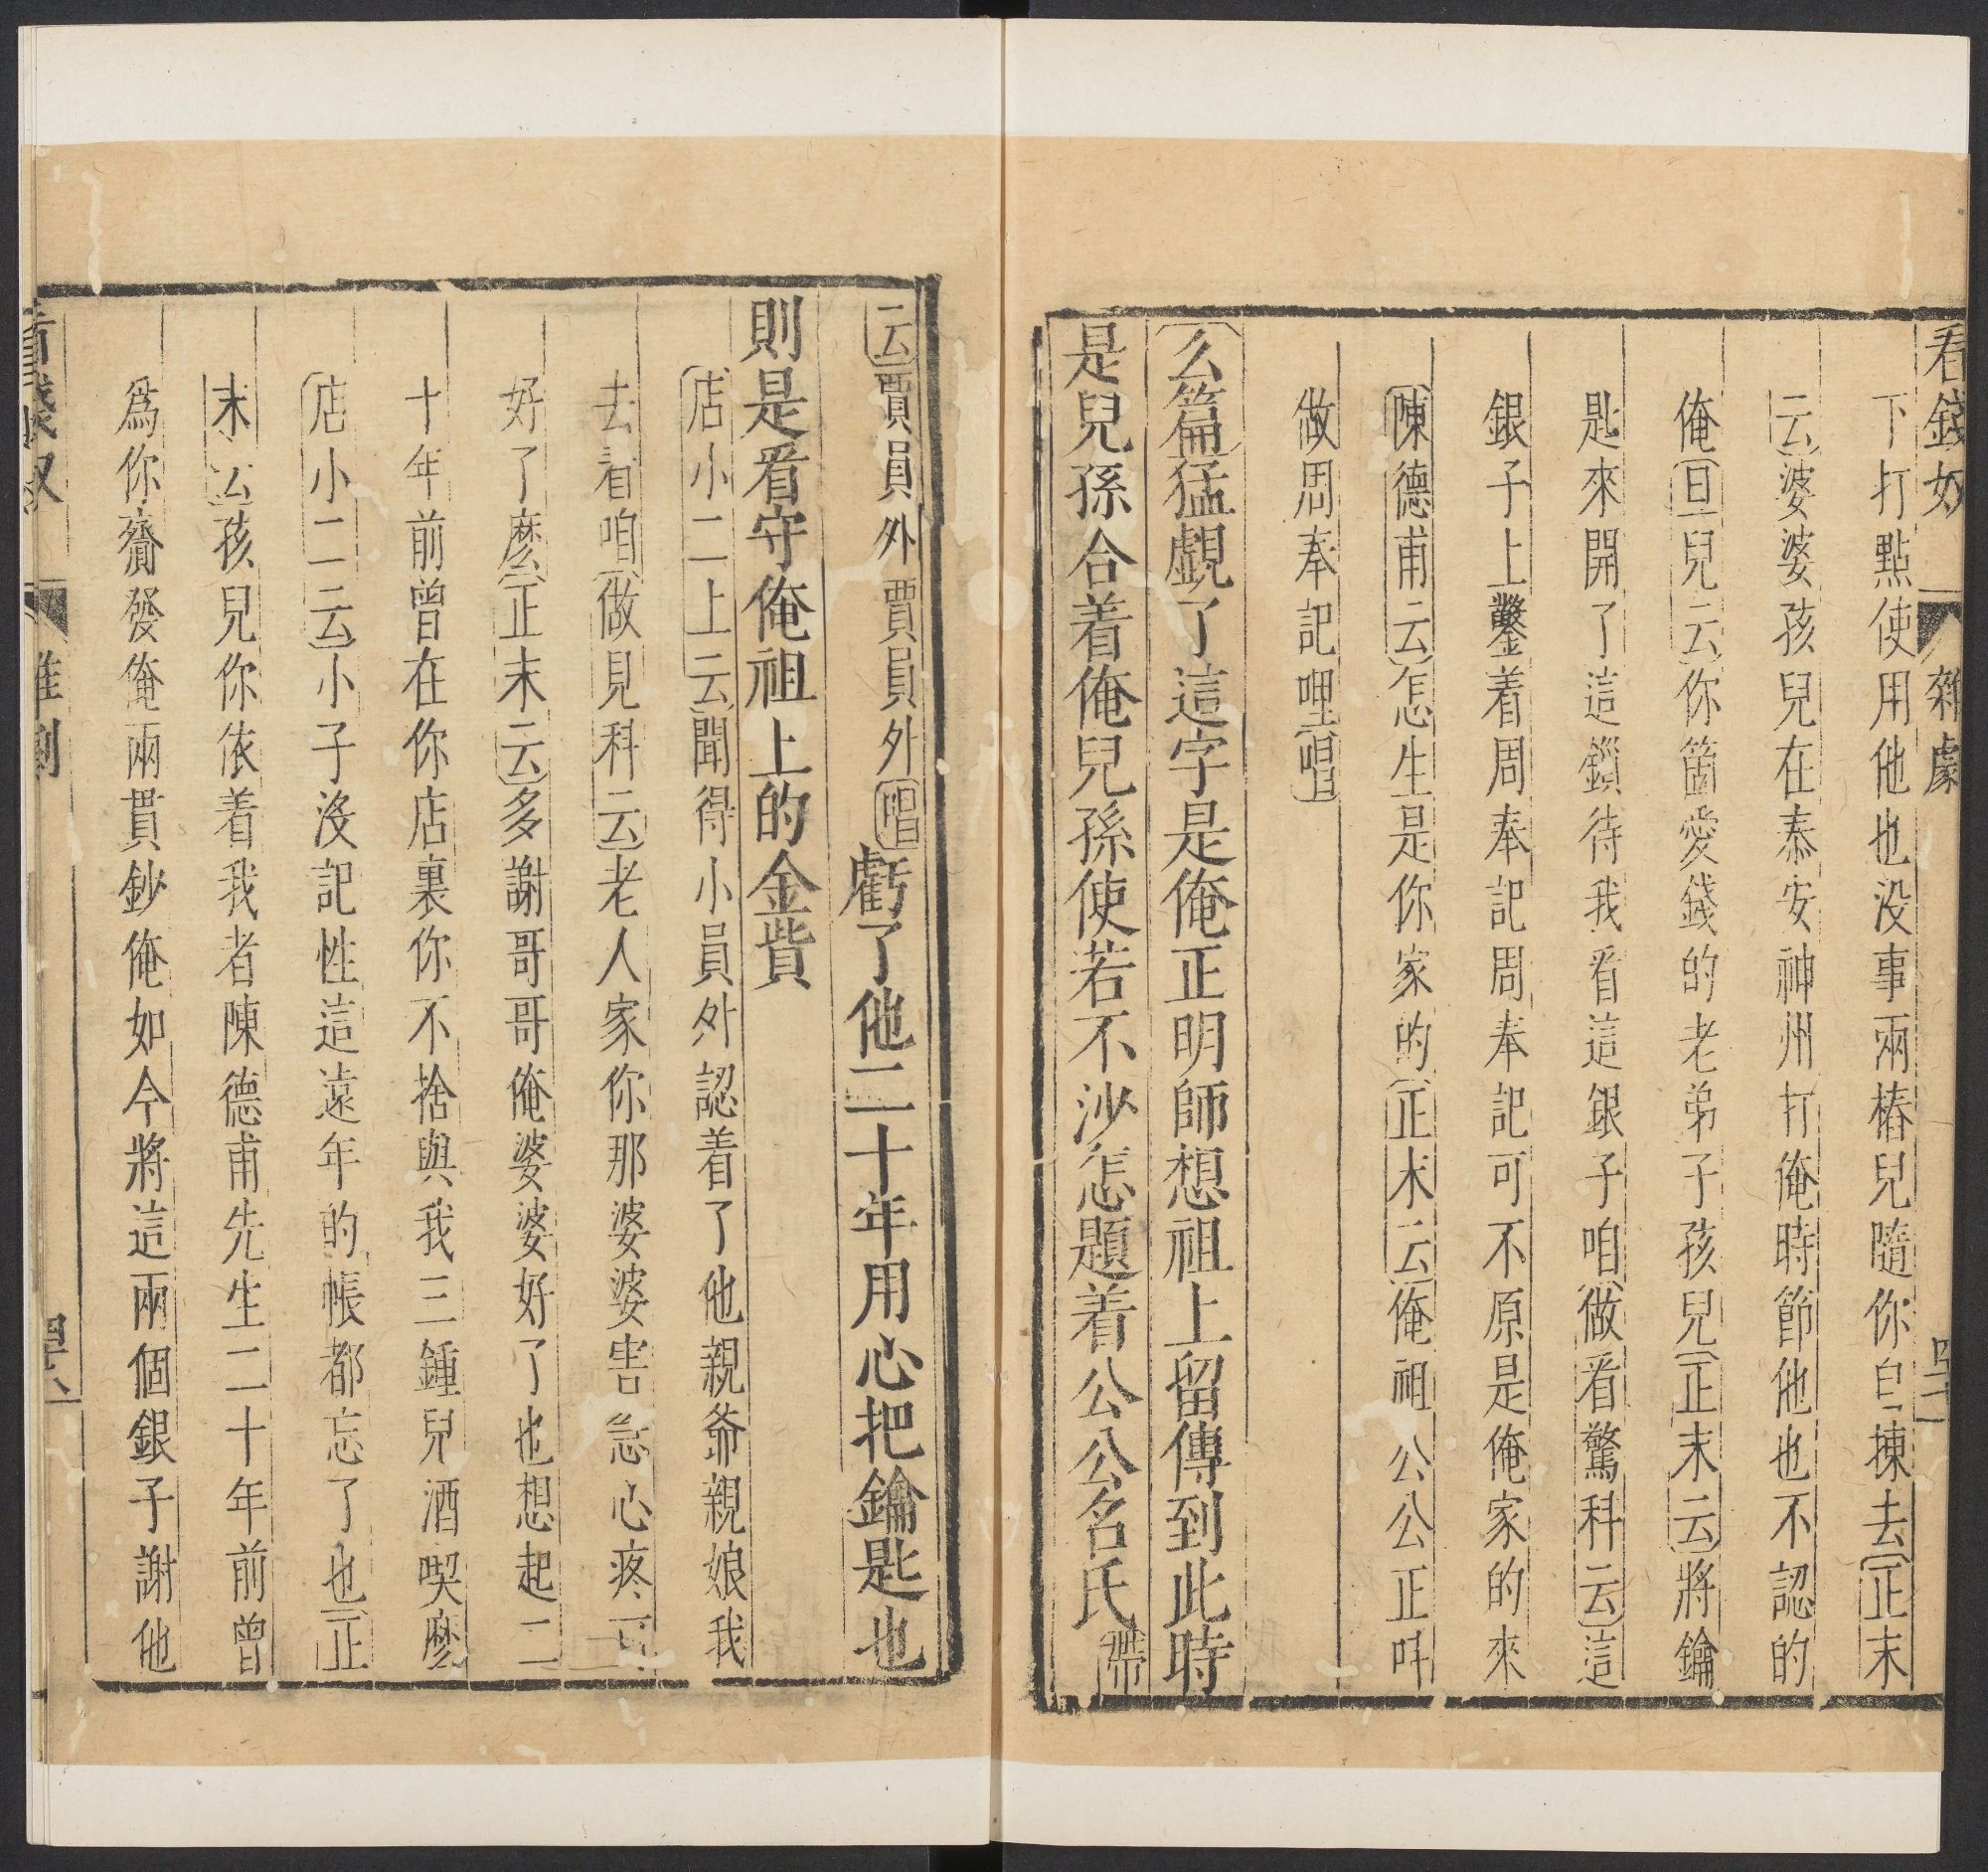 看錢奴 雜劇
下打點使用他也没事兩樁兒隨你自揀去正末
云婆婆孩兒在泰安神州打俺時節他也不認的
俺旦兒云你箇愛錢的老弟子孩兒正末云將鑰
匙來開了這鎖待我看這銀子咱做看驚科云這
銀子上鑿着周奉記周奉記可不原是俺家的來
陳德甫云怎生是你家的正末云俺祖公公正呌
做周奉記哩唱
么篇猛覷了這字是俺正明師想祖上留傳到此時
是兒孫合着俺兒孫使若不沙怎題着公公名氏帶
云賈員外賈員外唱虧了他二十年用心把鑰匙也
則是看守俺祖上的金貲
店小二上云聞得小員外認着了他親爺親娘我
去看咱做見科云老人家你那婆婆害急心疼可
好了麽正末云多謝哥哥俺婆婆好了也想起二
十年前曾在你店裏你不捨與我三鍾兒酒喫麽
店小二云小子沒記性這遠年的帳都忘了也正
末云孩兒你依着我者陳德甫先生二十年前曾
爲你齎發俺兩貫鈔俺如今將這兩個銀子謝他